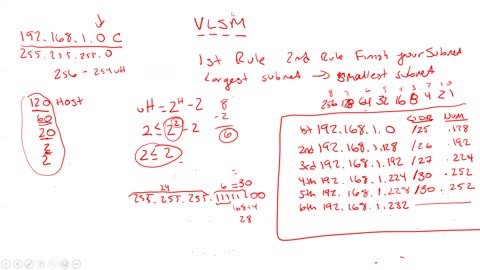 VLSM
192.168.1.0 C
255.255.255.0
256 - 254 uH
1st Rule 2nd Rule Finish your Subnet
Largest subnet → Smallest subnet
120 Host
60
20
2
2
uH = 2^H - 2
2 ≤ 2^2 - 2
2 ≤ 2
8
-2
6
8 7 6 5 4 3 2 1 0
256 128 64 32 16 8 4 2 1
CIDR Num
1st 192.168.1.0 /25 .128
2nd 192.168.1.128 /26 .192
3rd 192.168.1.192 /27 .224
4th 192.168.1.224 /30 .252
5th 192.168.1.228 /30 .252
6th 192.168.1.232
24 6 = 30
255.255.255.11111100
168+4
28